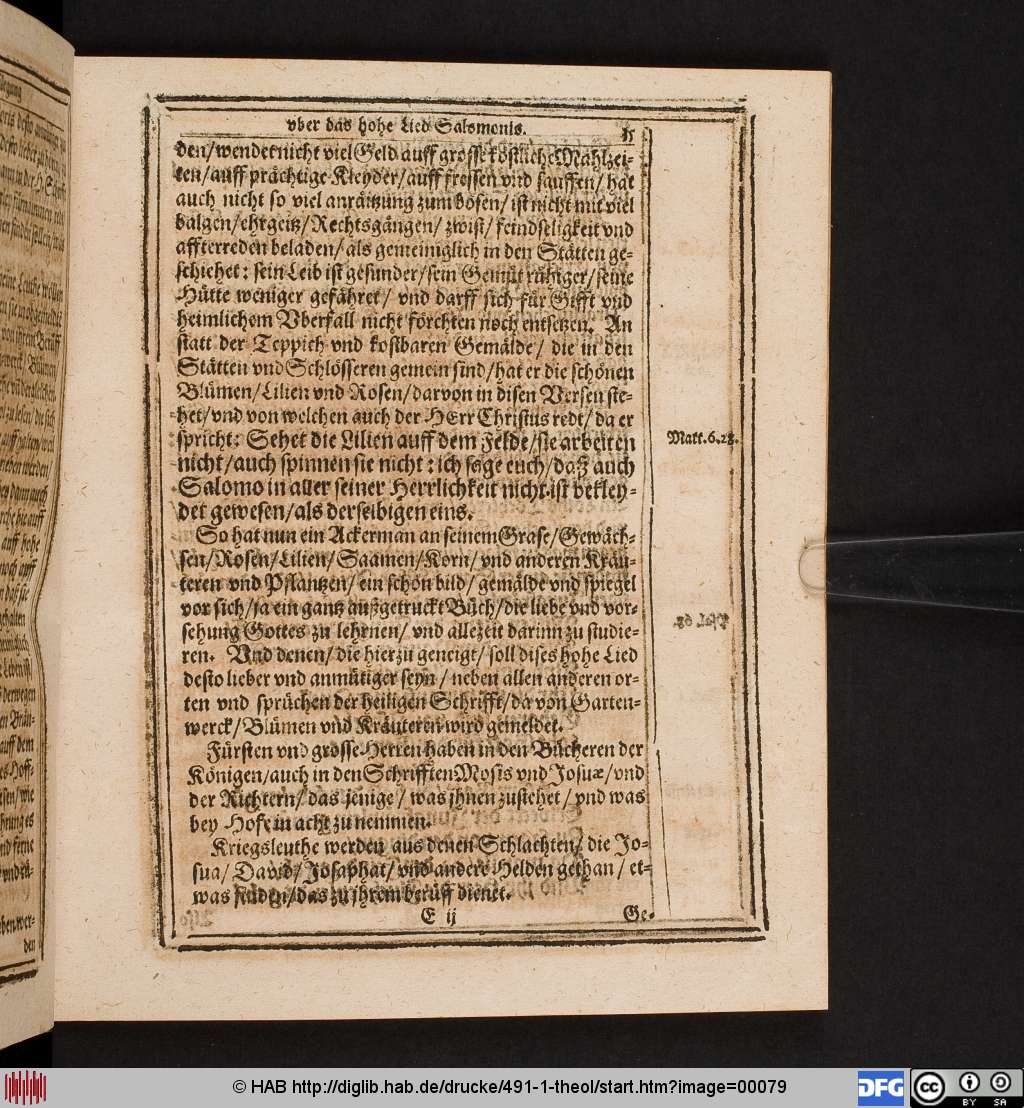 vber das hohe Lied Salomonis.
den/wendet nicht viel Geld auff grosse köstliche Mahlzei-
ten/auff prächtige Kleyder/auff fressen vnd sauffen/ hat
auch nicht so viel anräitzung zum bösen/ ist nicht mit viel
balgen/ehrgeitz/Rechtsgängen/ zwist/ feindseligkeit vnd
affterreden beladen/als gemeiniglich in den Stätten ge-
schiehet: sein Leib ist gesunder/sein Gemüt rühiger/seine
Hütte weniger gefähret/ vnd darff sich für Gifft vnd
heimlichem Vberfall nicht förchten noch entsetzen. An
statt der Teppich vnd kostbaren Gemälde/ die in den
Stätten vnd Schlösseren gemein sind/hat er die schönen
Blümen/Lilien vnd Rosen/darvon in disen Versen ste-
het/vnd von welchen auch der HErr Christus redt/ da er
spricht: Sehet die Lilien auff dem Felde/sie arbeiten
nicht/auch spinnen sie nicht: ich sage euch/daß auch
Salomo in aller seiner Herrlichkeit nicht ist bekley-
det gewesen/als derselbigen eins.
Matt. 6. 28.
So hat nun ein Ackerman an seinem Grase/Gewäch-
sen/Rosen/Lilien/Saamen/Korn/vnd anderen Kräu-
teren vnd Pflantzen/ein schön bild/gemälde vnd spiegel
vor sich/ja ein gantz außgetruckt Büch/die liebe vnd vor-
sehung Gottes zu lehrnen/ vnd allezeit darinn zu studie-
ren. Vnd denen/die hierzu geneigt/soll dises hohe Lied
desto lieber vnd anmütiger seyn/ neben allen anderen or-
ten vnd sprüchen der heiligen Schrifft/da von Garten-
werck/Blümen vnd Kräuteren wird gemeldet.
Fürsten vnd grosse Herren haben in den Bücheren der
Königen/auch in den Schrifften Mosis vnd Josuæ/vnd
der Richtern/das jenige/ was jhnen zustehet/ vnd was
bey Hofe in acht zu nemmen.
Kriegsleuthe werden aus denen Schlachten/ die Jo-
sua/ David/ Josaphat/ vnd andere Helden gethan/ et-
was finden/das zu jhrem berüff dienet.
E ij
Ge-
© HAB http://diglib.hab.de/drucke/491-1-theol/start.htm?image=00079
DFG
cc
BY SA